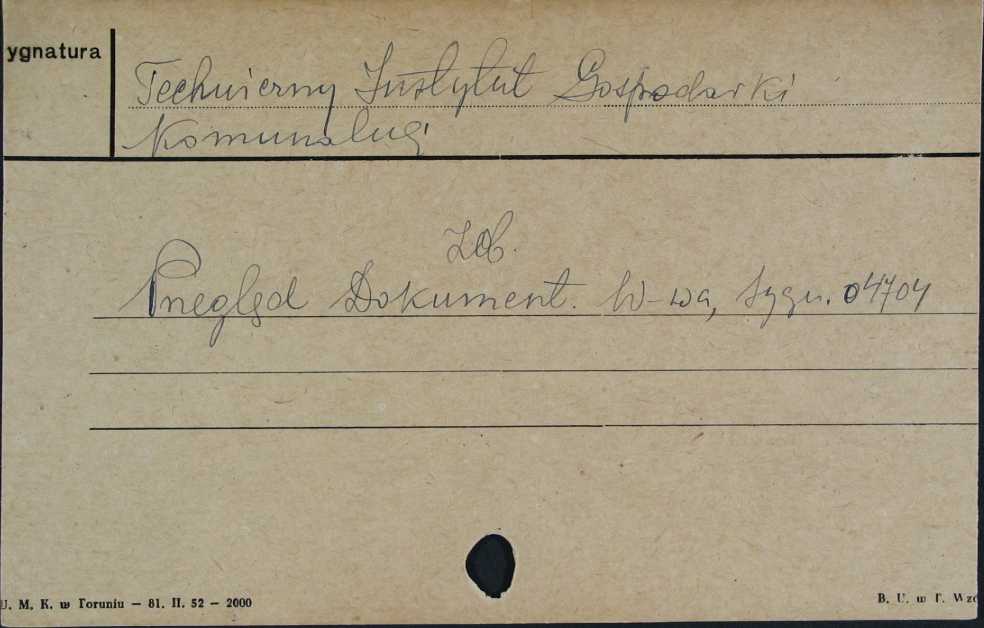 ygnatura
Techniczny Instytut Gospodarki
Komunalnej
Zob.
Przegląd Dokument. W-wa, sygn. 04704
U. M. K. w Toruniu — 81. II. 52 — 2000
B. U. w T. Wzó